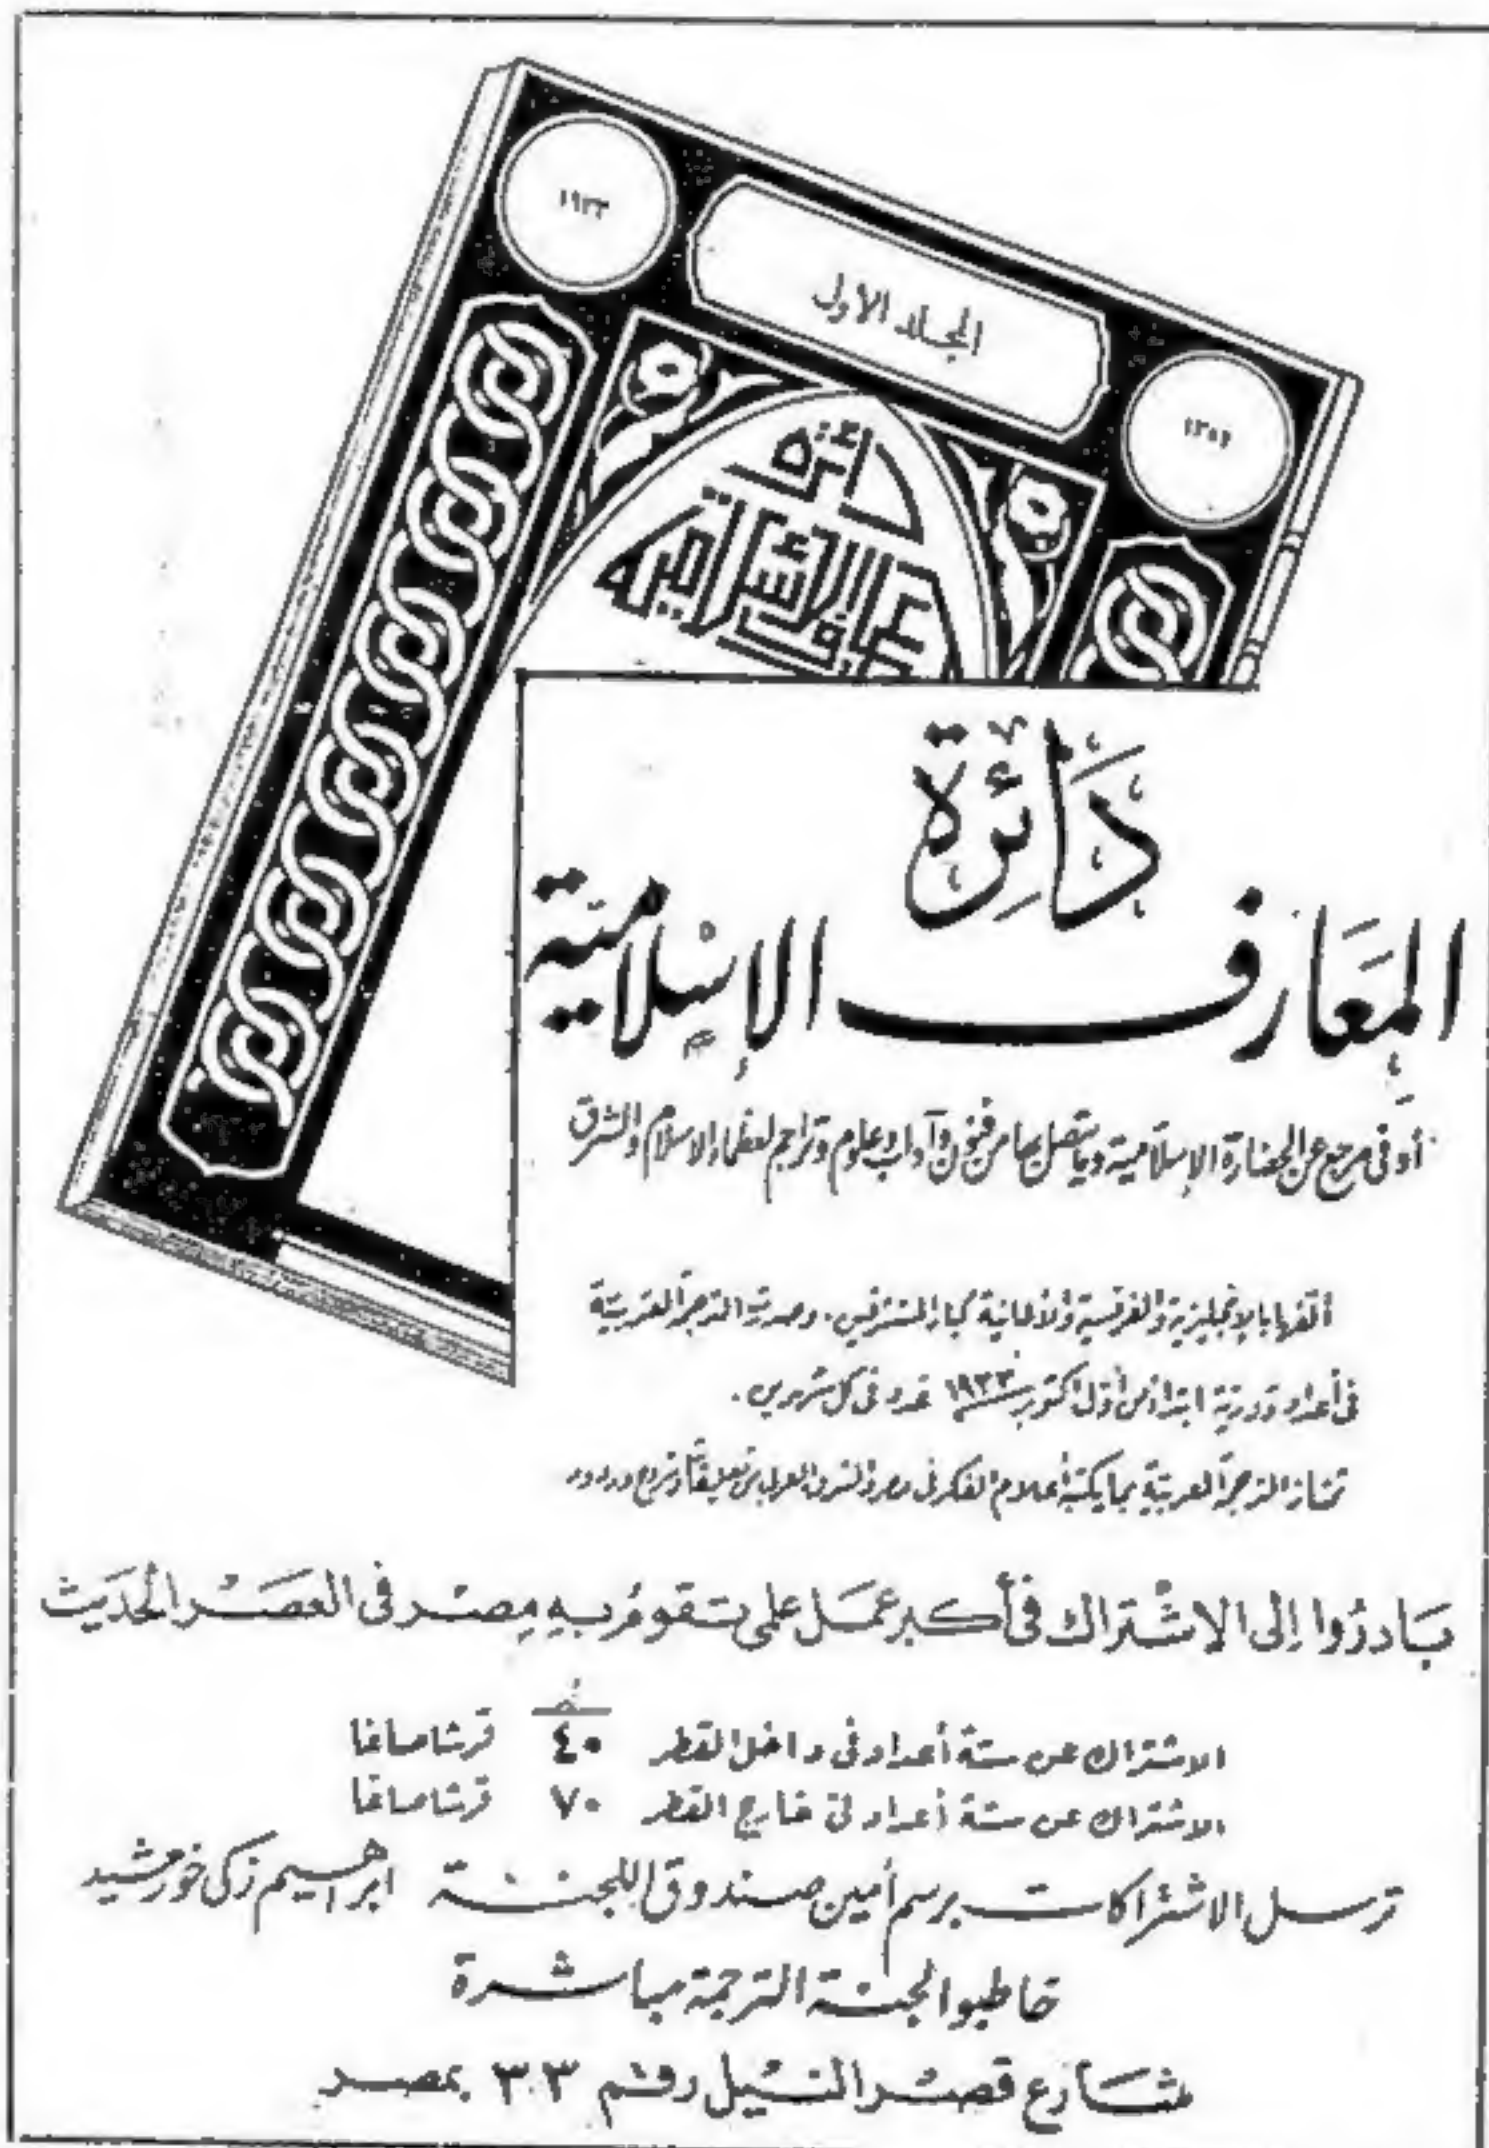 ١٩٣٣
المجلد الأول
١٣٥٢
دائرة
المعارف الإسلامية
دَائِرَة
المعَارف الإسْلاميَّة
أوفى مرجع عن الحضارة الإسلامية وما يتصل بها من فنون وآداب وعلوم وتراجم لعظماء الاسلام والشرق
ألفها بالإنجليزية والفرنسية والألمانية كبار المستشرقين . وصدرت الترجمة العربية
في أعداد دورية ابتداء من أول أكتوبر ١٩٣٣ عدد في كل شهرين .
تمتاز الترجمة العربية بما يكتبه أعلام الفكر في مصر والشرق العربي من تعليقات وشروح وردود
بَادرُوا إلى الاشْتراك في أكبر عمَل علمى تقومُ بهِ مِصْر في العصَر الحَديث
الاشتراك عن ستة أعداد في داخل القطر ٤٠ قرشا صاغا
الاشتراك عن ستة أعداد في خارج القطر ٧٠ قرشا صاغا
ترسل الاشتراكات برسم أمين صندوق اللجنة ابراهيم زكى خورشيد
خاطبوا لجنة الترجمة مباشرة
شارع قصر النيل رقم ٣٣ بمصر